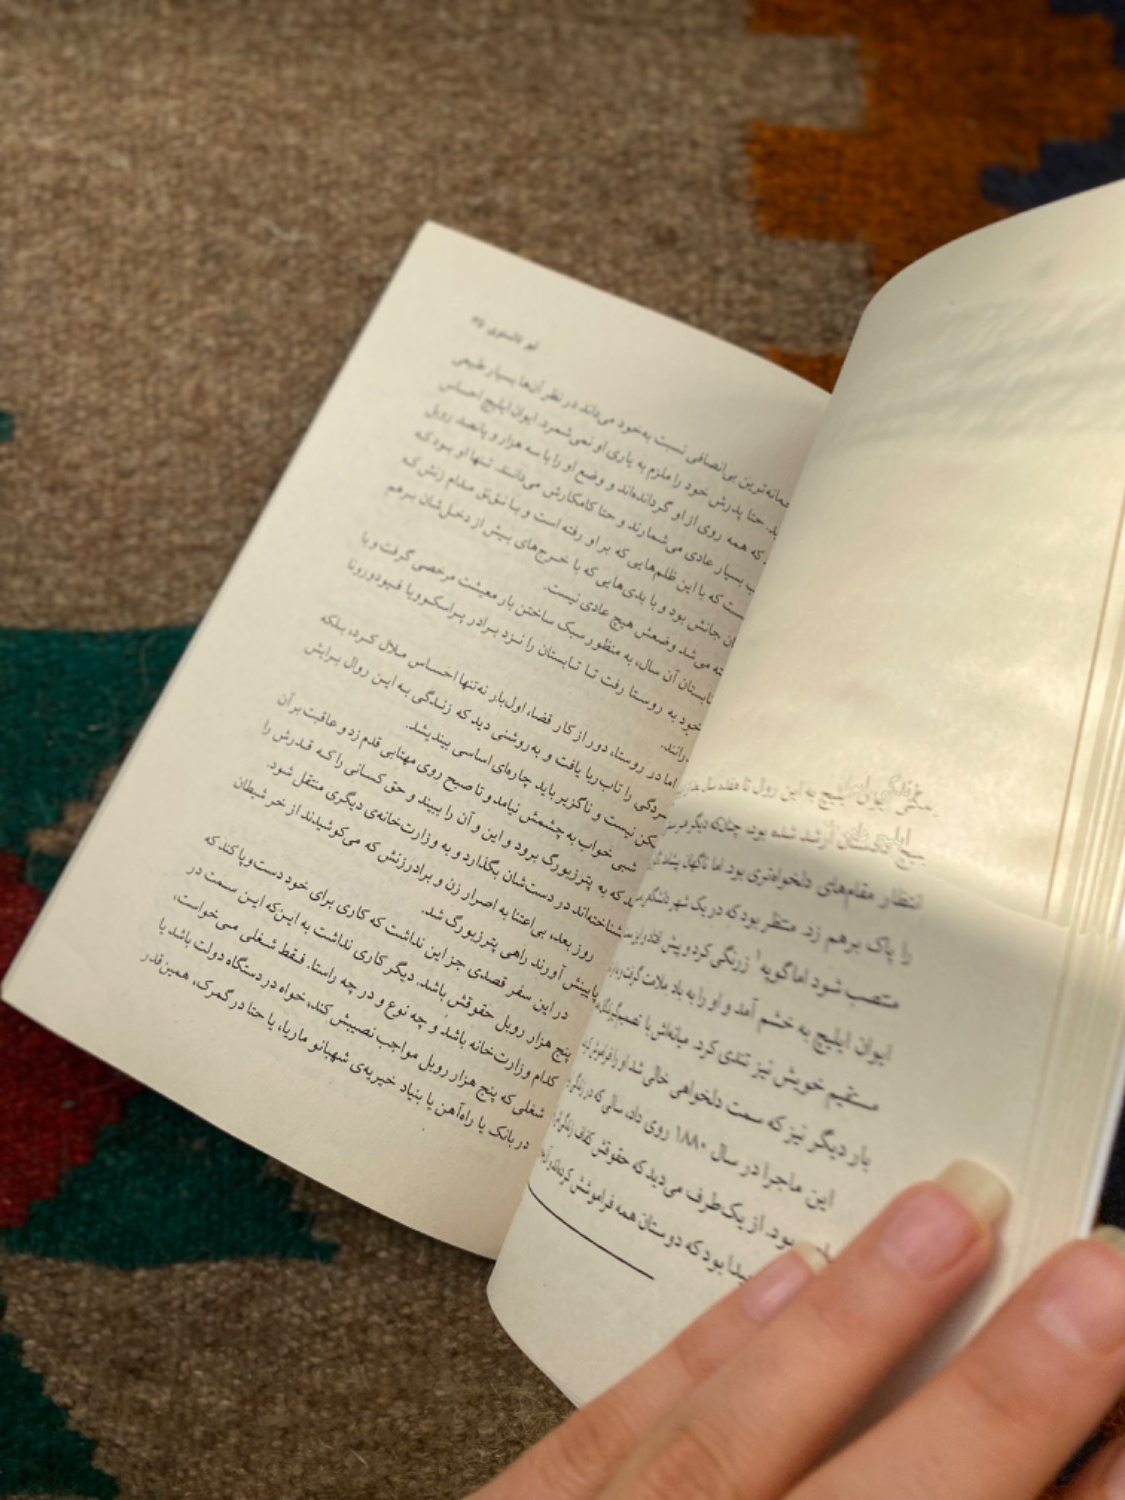 زندگی ایوان ایلیچ به این روال تا هفده سال
ارشد شده بود، چنان‌که دیگر
انتظار مقام‌های دلخواه‌تری بود. اما ناگهان
را پاک برهم زد. منتظر بود که در یک شهر
منتصب شود اما گوپه۱ زرنگی کرد و پیش افتاد
ایوان ایلیچ به خشم آمد و او را به باد ملامت گرفت
مستقیم خویش نیز تندی کرد. میانه‌اش با
بار دیگر نیز که سمت دلخواهی خالی شد او را
این ماجرا در سال ۱۸۸۰ روی داد، سالی که در زندگی
بود. از یک‌طرف می‌دید که حقوقش کفاف
پیدا بود که دوستان همه فراموشش کرده‌اند
لیو تالستوی ۳۵
بی‌انصافی نسبت به‌خود می‌داند در نظر آن‌ها بسیار طبیعی
حتا پدرش خود را ملزم به یاری او نمی‌شمرد. ایوان ایلیچ احساس
که همه روی از او گردانده‌اند و وضع او را با سه هزار و پانصد روبل
بسیار عادی می‌شمارند و حتا کامکارش می‌دانند. تنها او بود که
که با این ظلم‌هایی که بر او رفته است و با نق‌نق مدام زنش که
جانش بود و با بدی‌هایی که با خرج‌های بیش از دخل‌شان برهم
می‌شد وضعش هیچ عادی نیست.
تابستان آن سال، به منظور سبک ساختن بار معیشت مرخصی گرفت و با
خود به روستا رفت تا تابستان را نزد برادر پراسکوویا فیودورونا
اما در روستا، دور از کار قضا، اول‌بار نه‌تنها احساس ملال کرد، بلکه
را تاب‌ربا یافت و به‌روشنی دید که زندگی به این روال برایش
نیست و ناگزیر باید چاره‌ای اساسی بیندیشد.
شبی خواب به چشمش نیامد و تا صبح روی مهتابی قدم زد و عاقبت بر آن
که به پترزبورگ برود و این و آن را ببیند و حق کسانی را که قدرش را
نشناخته‌اند در دست‌شان بگذارد و به وزارت‌خانه‌ی دیگری منتقل شود.
روز بعد، بی‌اعتنا به اصرار زن و برادرزنش که می‌کوشیدند از خر شیطان
پایینش آورند راهی پترزبورگ شد.
در این سفر قصدی جز این نداشت که کاری برای خود دست‌وپا کند که
پنج هزار روبل حقوقش باشد. دیگر کاری نداشت به این‌که این سمت در
کدام وزارت‌خانه باشد و چه نوع و در چه راستا. فقط شغلی می‌خواست،
شغلی که پنج هزار روبل مواجب نصیبش کند، خواه در دستگاه دولت باشد یا
در بانک یا راه‌آهن یا بنیاد خیریه‌ی شهبانو ماریا، یا حتا در گمرک، همین‌قدر